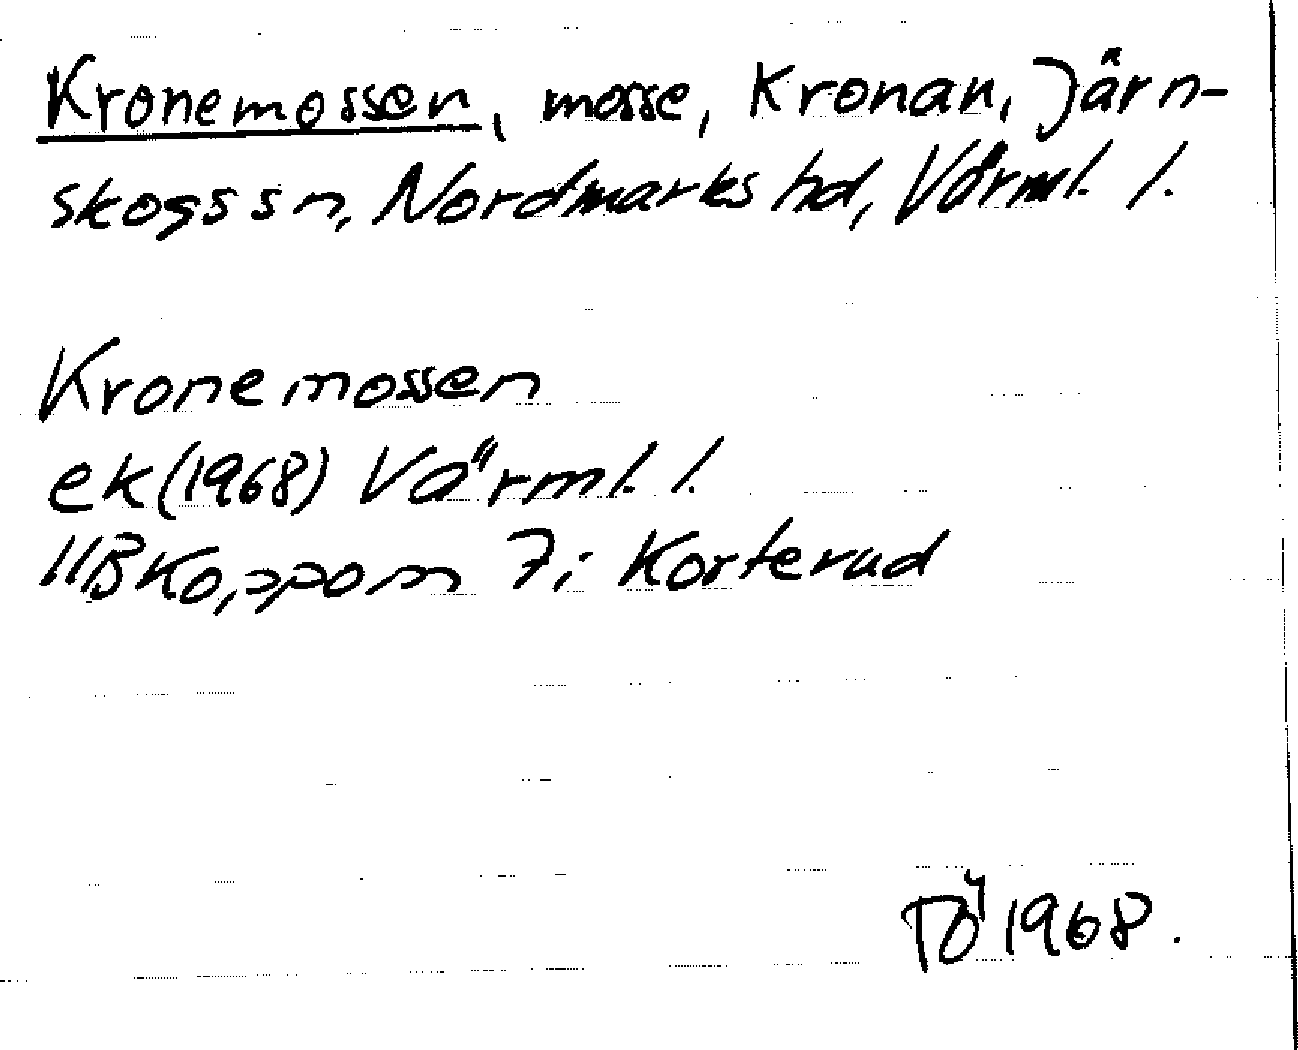 Kronemossen, mosse, Kronan, Järn-
skogs sn, Nordmarks hd, Värml. l.
Kronemossen
ek (1968) Värml. l.
11B Koppom 7i Korterud
TÖ 1968.